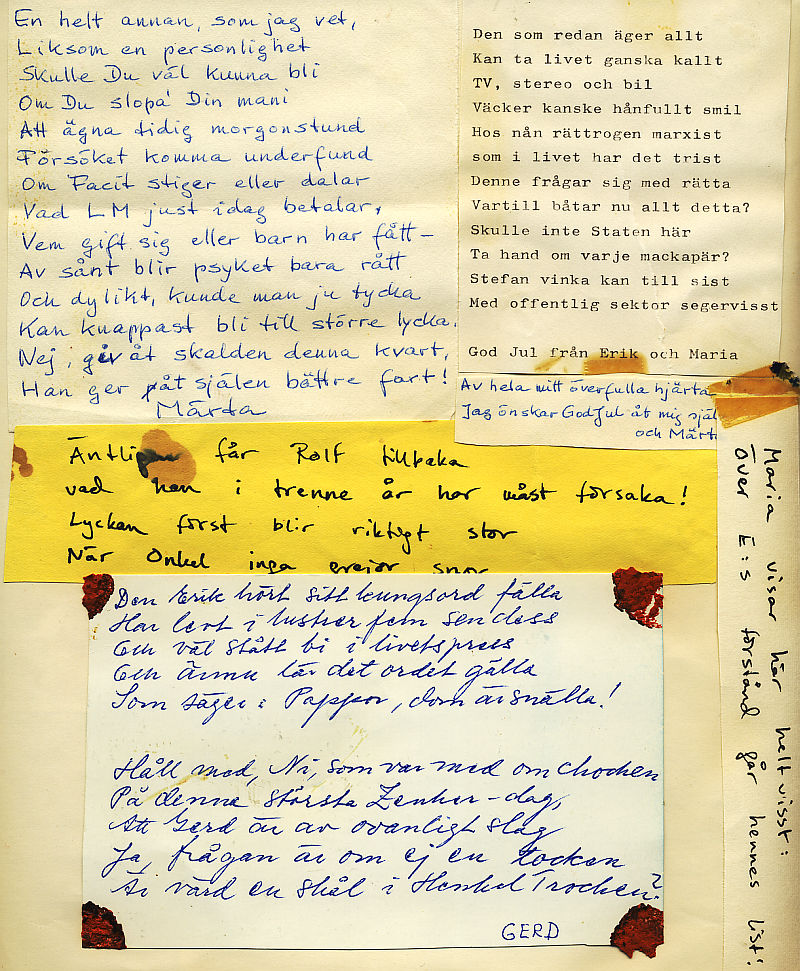 En helt annan, som jag vet,
Liksom en personlighet
Skulle Du väl kunna bli
Om Du slopa' Din mani
Att ägna tidig morgonstund
Försöket komma underfund
Om Facit stiger eller dalar
Vad LM just idag betalar,
Vem gift sig eller barn har fått –
Av sånt blir psyket bara rått
Och dylikt, kunde man ju tycka
Kan knappast bli till större lycka.
Nej, giv åt skalden denna kvart,
Han ger åt själen bättre fart!
Märta
Den som redan äger allt
Kan ta livet ganska kallt
TV, stereo och bil
Väcker kanske hånfullt smil
Hos nån rättrogen marxist
som i livet har det trist
Denne frågar sig med rätta
Vartill båtar nu allt detta?
Skulle inte Staten här
Ta hand om varje mackapär?
Stefan vinka kan till sist
Med offentlig sektor segervisst
God Jul från Erik och Maria
Av hela mitt överfulla hjärta
Jag önskar God Jul åt mig själ
och Märta
Äntligen får Rolf tillbaka
vad han i trenne år har måst försaka!
Lyckan först blir riktigt stor
När Onkel inga grejor snor
Den Erik hört sitt kungsord fälla
Har levt i lustrer fem sen dess
Och väl stått bi i livets press
Och ännu lär det ordet gälla
Som säger: Pappor, dom är snälla!
Håll med, Ni, som var med om chocken
På denna största Zenker-dag,
Att Gerd är av ovanligt slag
Ja, frågan är om ej en tocken
Är värd en skål i Henkel Trocken?
GERD
Maria visar här helt visst:
Över E:s förstånd går hennes list!